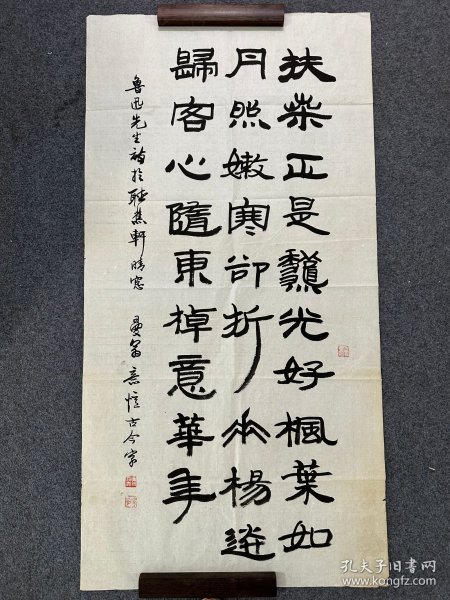 扶桒正是龝光好楓葉如
丹照嫩寒卻折垂楊送
歸客心隨東棹意華年
魯迅先生詩於聽蕉軒晴窗 曼翁 意憶古今字
孔夫子旧书网
www.kongfz.com